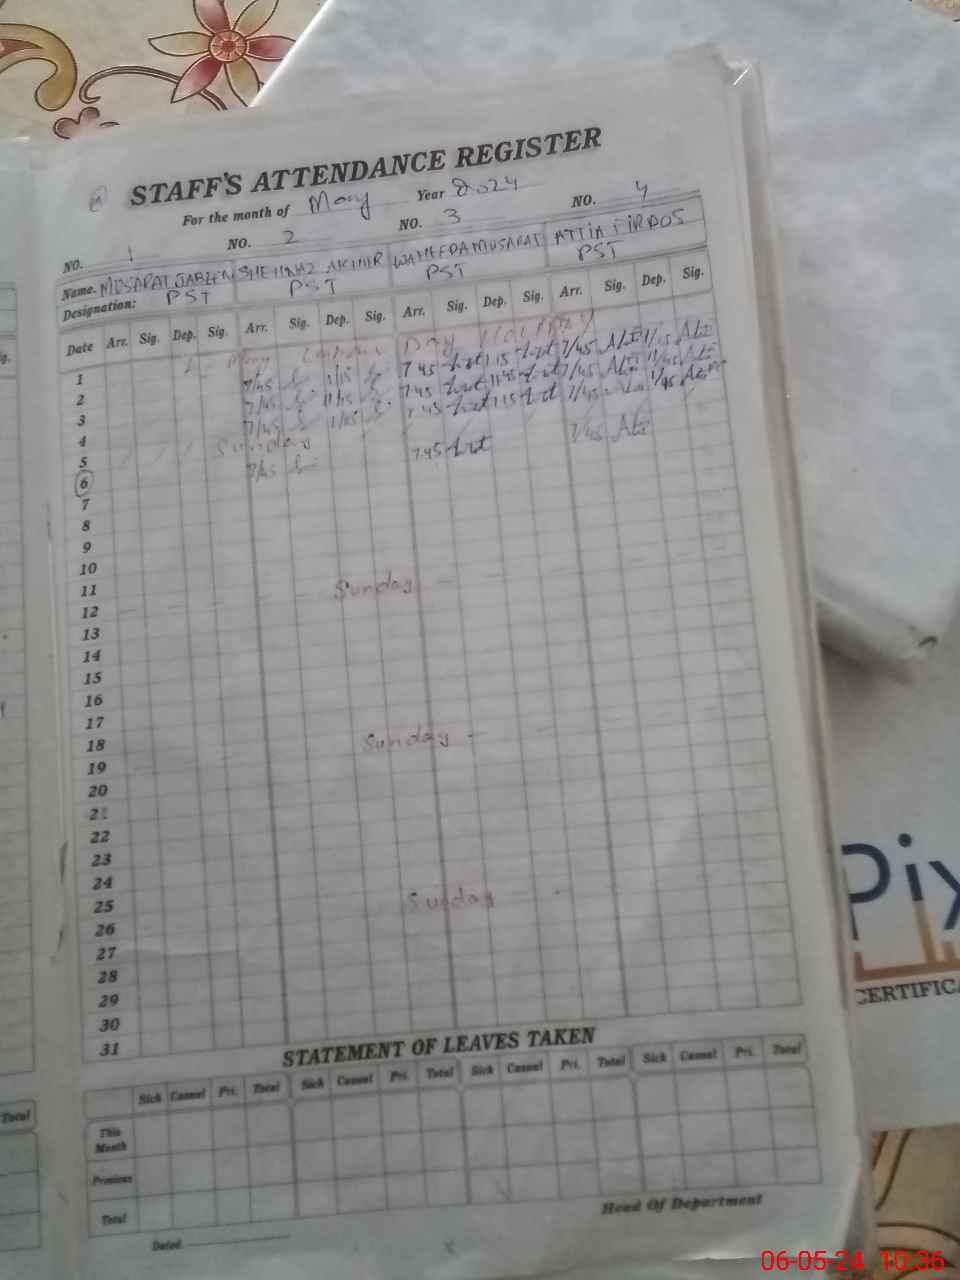 STAFF'S ATTENDANCE REGISTER
For the month of May Year 2024
NO. 1 NO. 2 NO. 3 NO. 4
Name. MUSARAT JABEEN SHEHNAZ AKHTAR WAHEEDA MUSARAT ATTIA FIRDOS
Designation: PST PST PST PST
Date Arr. Sig. Dep. Sig. Arr. Sig. Dep. Sig. Arr. Sig. Dep. Sig. Arr. Sig. Dep. Sig.
1 May Day Holiday
2 7/45 1/15 7 45 1 15 7/45 1/15
3 7/45 11/45 7 45 11 45 7/45 11/45
4 7/45 7 45 1 15 7/45
5 Sunday
6 7/45 7 45 7/45
7
8
9
10
11
12 Sunday
13
14
15
16
17
18
19 Sunday
20
21
22
23
24
25
26 Sunday
27
28
29
30
31
STATEMENT OF LEAVES TAKEN
Sick Casual Pri. Total Sick Casual Pri. Total Sick Casual Pri. Total Sick Casual Pri. Total
This Month
Previous
Total
Dated
Head Of Department
g.
Total
Pix
CERTIFICA
06-05-24 10:36